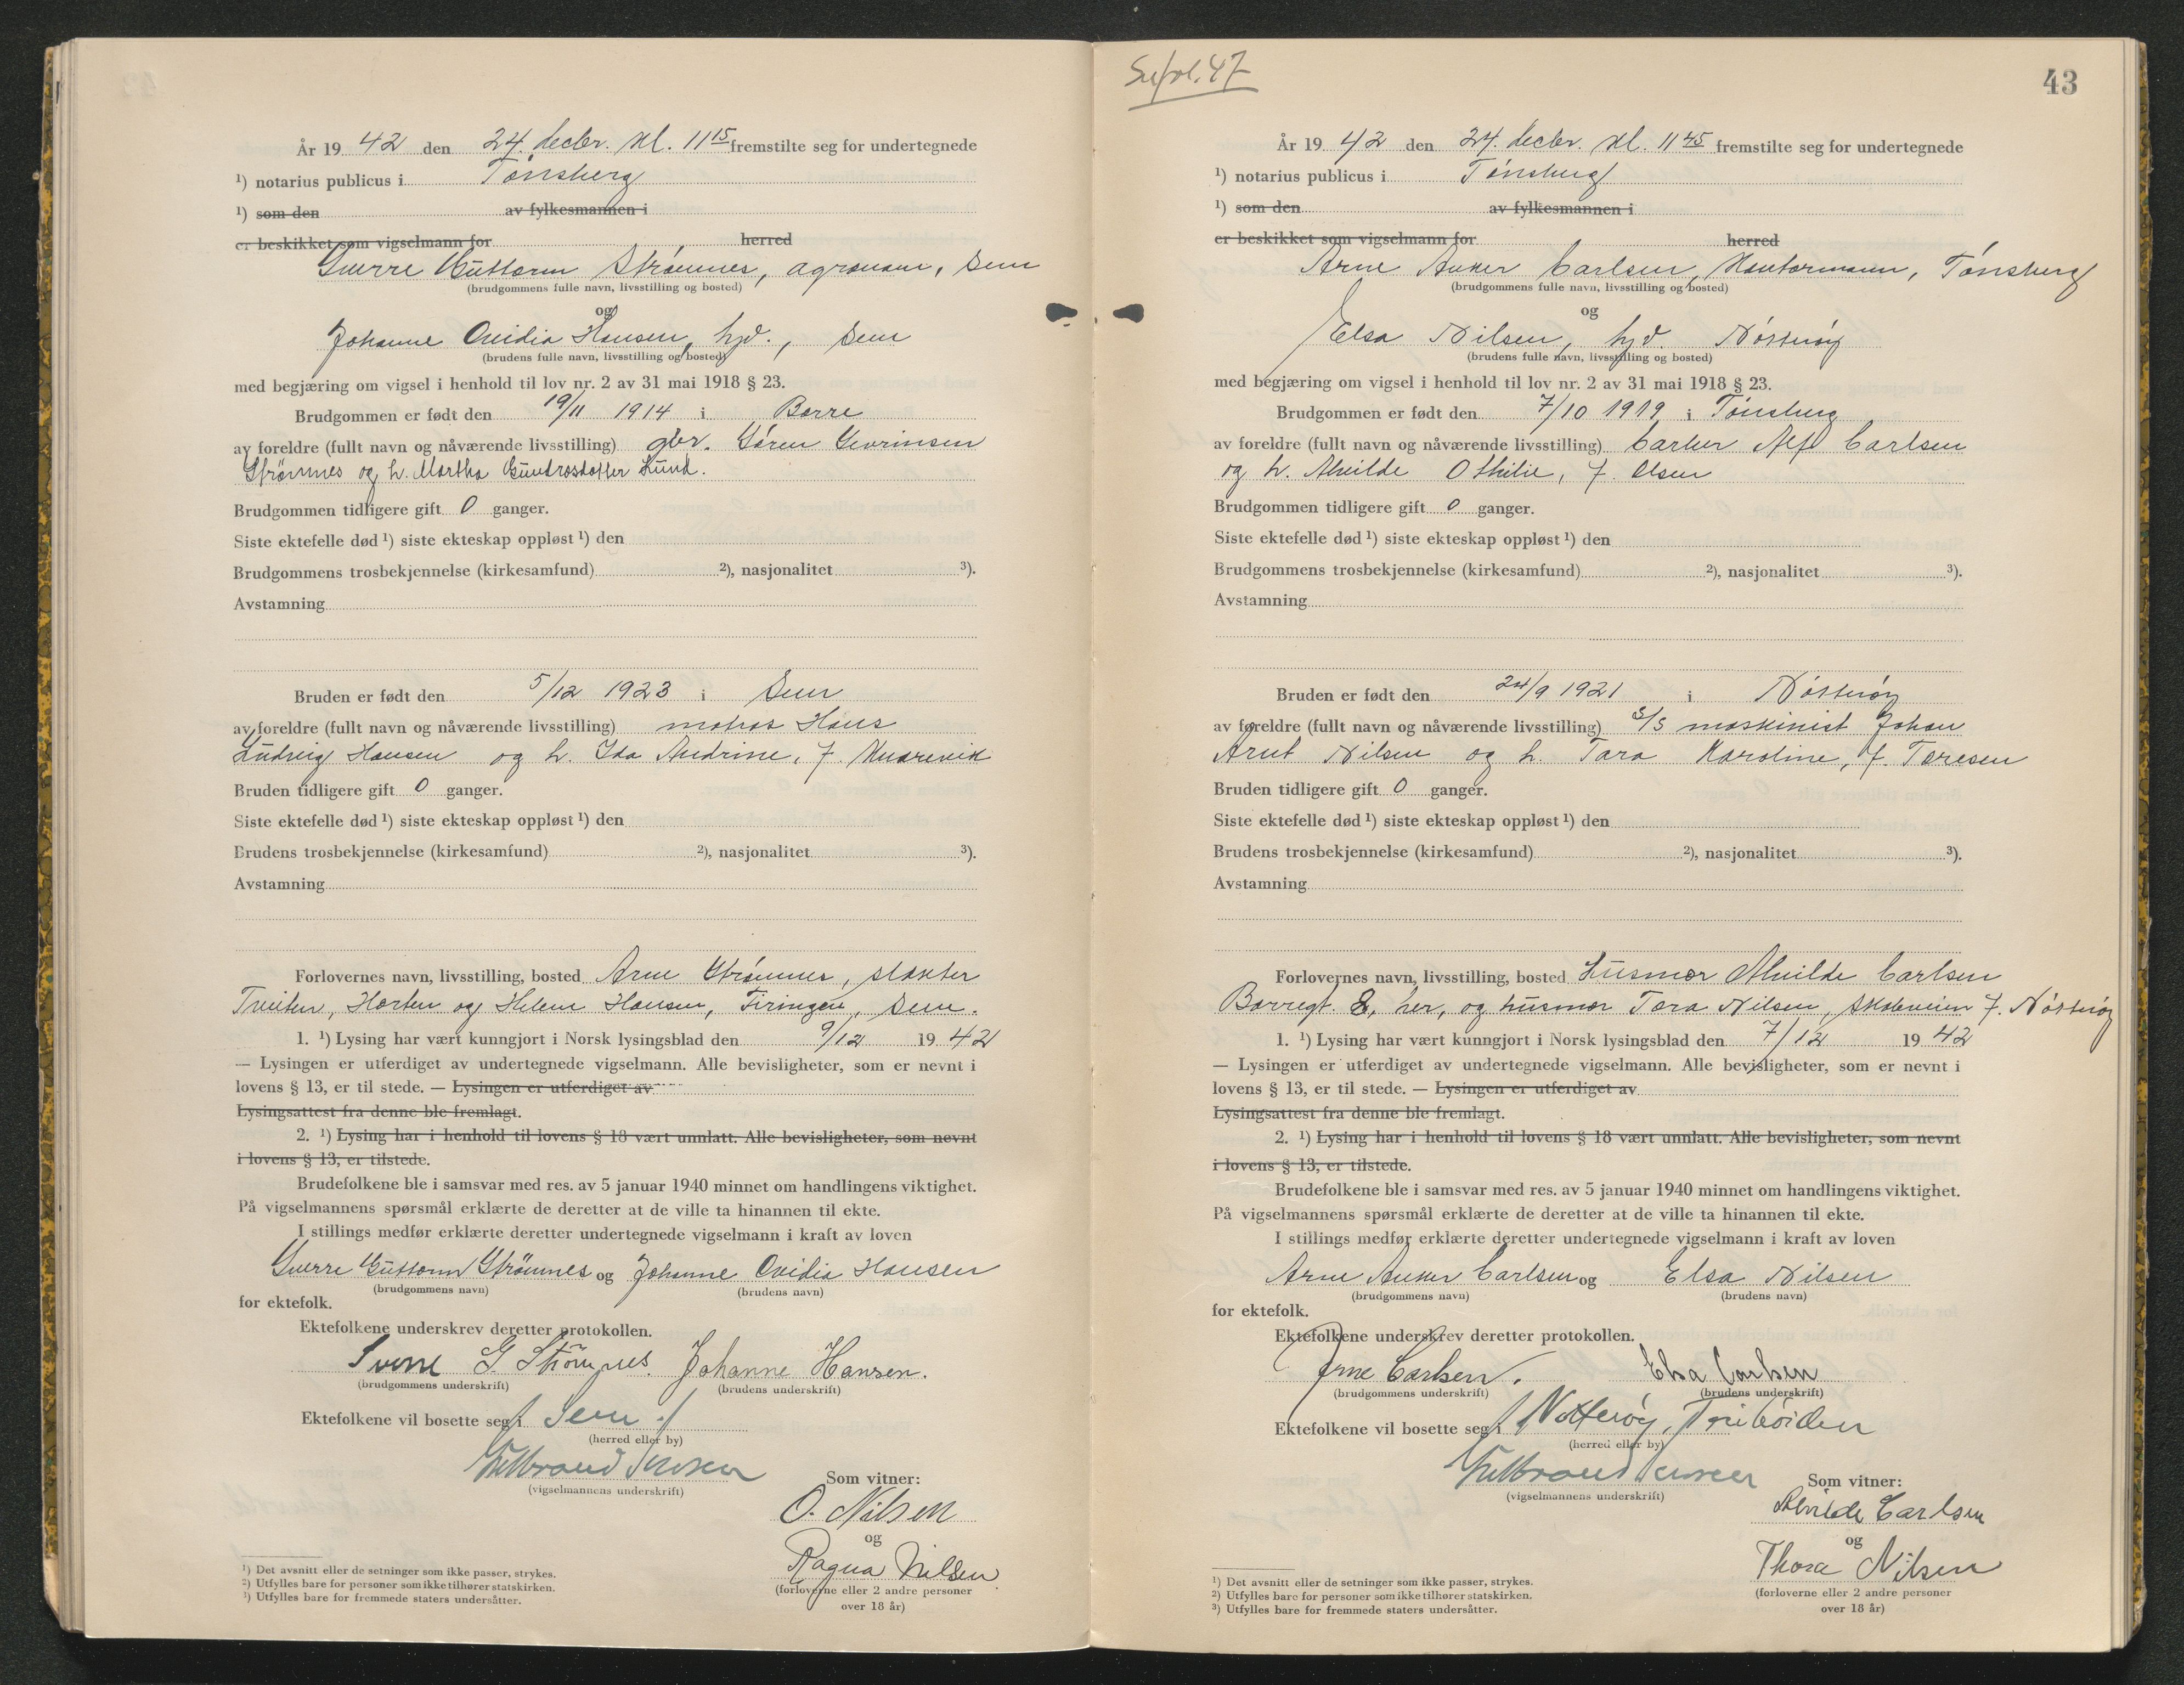 År 19 42 den 24. decbr. kl. 11 15 fremstilte seg for undertegnede
¹) notarius publicus i Tønsberg
¹) som den av fylkesmannen i
er beskikket som vigselmann for herred
Sverre Guttorm Strömnes, agronom, Sem
(brudgommens fulle navn, livsstilling og bosted)
og
Johanne Ovidia Hansen, hjd., Sem
(brudens fulle navn, livsstilling og bosted)
med begjæring om vigsel i henhold til lov nr. 2 av 31 mai 1918 § 23.
Brudgommen er født den 19/11 1914 i Borre
av foreldre (fullt navn og nåværende livsstilling) gbr. Sören Severinsen
Strömnes og h. Martha Gundrosdatter Lund.
Brudgommen tidligere gift 0 ganger.
Siste ektefelle død ¹) siste ekteskap oppløst ¹) den
Brudgommens trosbekjennelse (kirkesamfund) ²), nasjonalitet ³).
Avstamning
Bruden er født den 5/12 1923 i Sem
av foreldre (fullt navn og nåværende livsstilling) matros Hans
Ludvig Hansen og h. Ida Andrine, f. Knarevik
Bruden tidligere gift 0 ganger.
Siste ektefelle død ¹) siste ekteskap oppløst ¹) den
Brudens trosbekjennelse (kirkesamfund) ²), nasjonalitet ³).
Avstamning
Forlovernes navn, livsstilling, bosted Arne Strömnes, slakter
Tveiten, Horten og Helene Hansen, Firingen, Sem.
1. ¹) Lysing har vært kunngjort i Norsk lysingsblad den 9/12 19 42
— Lysingen er utferdiget av undertegnede vigselmann. Alle bevisligheter, som er nevnt i
lovens § 13, er til stede. — Lysingen er utferdiget av
Lysingsattest fra denne ble fremlagt.
2. ¹) Lysing har i henhold til lovens § 18 vært unnlatt. Alle bevisligheter, som nevnt
i lovens § 13, er tilstede.
Brudefolkene ble i samsvar med res. av 5 januar 1940 minnet om handlingens viktighet.
På vigselmannens spørsmål erklærte de deretter at de ville ta hinannen til ekte.
I stillings medfør erklærte deretter undertegnede vigselmann i kraft av loven
Sverre Guttorm Strömnes og Johanne Ovidia Hansen
(brudgommens navn) (brudens navn)
for ektefolk.
Ektefolkene underskrev deretter protokollen.
Sverre G. Strömnes. Johanne Hansen.
(brudgommens underskrift) (brudens underskrift)
Ektefolkene vil bosette seg i Sem
(herred eller by)
(vigselmannens underskrift)
Som vitner:
O. Nilsen
og
Ragna Nilsen
(forloverne eller 2 andre personer
over 18 år)
¹) Det avsnitt eller de setninger som ikke passer, strykes.
²) Utfylles bare for personer som ikke tilhører statskirken.
³) Utfylles bare for fremmede staters undersåtter.
Se fol. 47
43
År 19 42 den 24. decbr. kl. 11 45 fremstilte seg for undertegnede
¹) notarius publicus i Tønsberg
¹) som den av fylkesmannen i
er beskikket som vigselmann for herred
Arne Anker Carlsen, kontormann, Tønsberg
(brudgommens fulle navn, livsstilling og bosted)
og
Elsa Nilsen, hjd. Nøtterøy
(brudens fulle navn, livsstilling og bosted)
med begjæring om vigsel i henhold til lov nr. 2 av 31 mai 1918 § 23.
Brudgommen er født den 7/10 1919 i Tønsberg
av foreldre (fullt navn og nåværende livsstilling) Alf Carlsen
og h. Alvilde Othilie, f. Olsen
Brudgommen tidligere gift 0 ganger.
Siste ektefelle død ¹) siste ekteskap oppløst ¹) den
Brudgommens trosbekjennelse (kirkesamfund) ²), nasjonalitet ³).
Avstamning
Bruden er født den 24/9 1921 i Nøtterøy
av foreldre (fullt navn og nåværende livsstilling) maskinist Johan
Arnt Nilsen og h. Tora Karoline, f. Toresen
Bruden tidligere gift 0 ganger.
Siste ektefelle død ¹) siste ekteskap oppløst ¹) den
Brudens trosbekjennelse (kirkesamfund) ²), nasjonalitet ³).
Avstamning
Forlovernes navn, livsstilling, bosted husmor Alvilde Carlsen
Borregt. 8, her, og husmor Tora Nilsen, Skoleveien 7. Nøtterøy
1. ¹) Lysing har vært kunngjort i Norsk lysingsblad den 7/12 19 42
— Lysingen er utferdiget av undertegnede vigselmann. Alle bevisligheter, som er nevnt i
lovens § 13, er til stede. — Lysingen er utferdiget av
Lysingsattest fra denne ble fremlagt.
2. ¹) Lysing har i henhold til lovens § 18 vært unnlatt. Alle bevisligheter, som nevnt
i lovens § 13, er tilstede.
Brudefolkene ble i samsvar med res. av 5 januar 1940 minnet om handlingens viktighet.
På vigselmannens spørsmål erklærte de deretter at de ville ta hinannen til ekte.
I stillings medfør erklærte deretter undertegnede vigselmann i kraft av loven
Arne Anker Carlsen og Elsa Nilsen
(brudgommens navn) (brudens navn)
for ektefolk.
Ektefolkene underskrev deretter protokollen.
Arne Carlsen. Elsa Carlsen
(brudgommens underskrift) (brudens underskrift)
Ektefolkene vil bosette seg i Nøtterøy,
(herred eller by)
(vigselmannens underskrift)
Som vitner:
Alvilde Carlsen
og
Thora Nilsen
(forloverne eller 2 andre personer
over 18 år)
¹) Det avsnitt eller de setninger som ikke passer, strykes.
²) Utfylles bare for personer som ikke tilhører statskirken.
³) Utfylles bare for fremmede staters undersåtter.